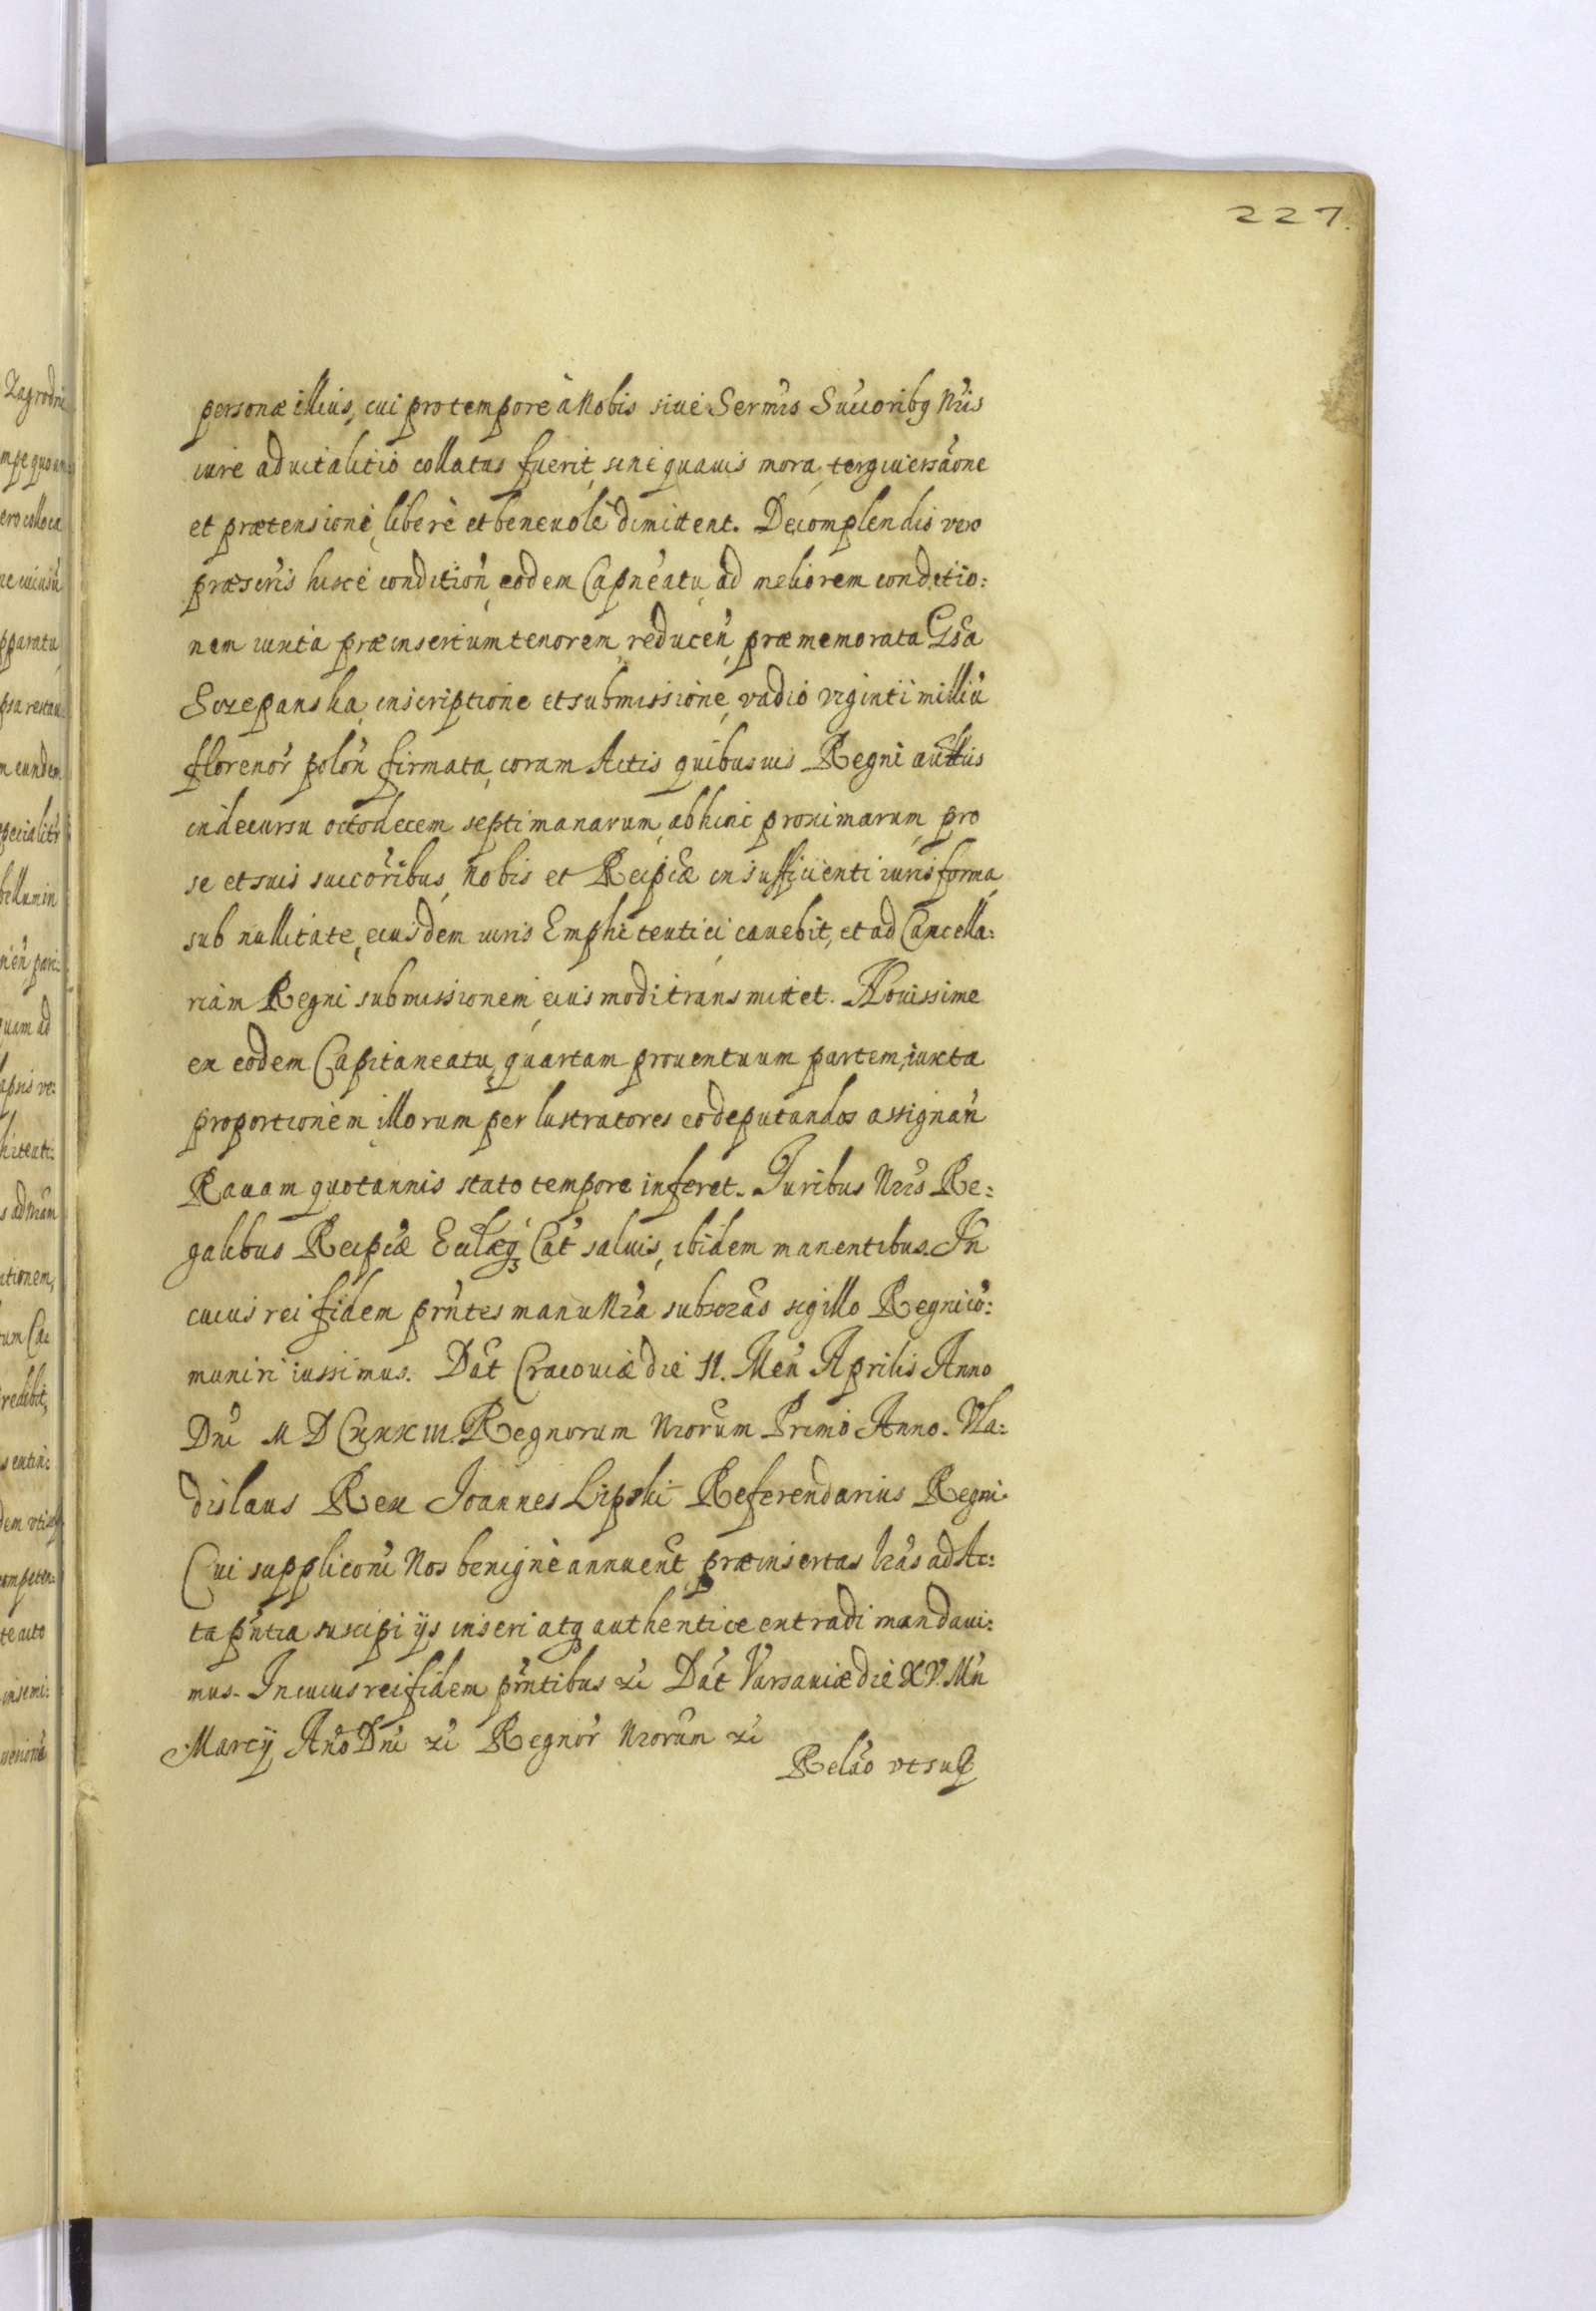 227.
personæ illius, cui pro tempore à Nobis siue Sermis Succoribq Nris
iure aduitalitio collatus fuerit, sine quauis mora, tergiuersaone
et prætensione, liberè et beneuolè dimittent. De complendis vero
præscris hisce condition, eodem Capneatu, ad meliorem conditio:
nem iuxta præinsertum tenorem, reducen, præmemorata Gsa
Sczepanska, inscriptione et submissione, vadio viginti milliu
florenor polon firmata, coram Actis quibusuis Regni autticis
in decursu octodecem septimanarum, abhinc proximarum, pro
se et suis succoribus, Nobis et Reipcæ in sufficienti iuris forma,
sub nullitate, eiusdem iuris Emphiteutici cauebit, et ad Cancella:
riam Regni submissionem eius modi transmittet. Nouissime
ex eodem Capitaneatu, quartam prouentuum partem, iuxta
proportionem illorum per lustratores eo deputandos assignan
Rauam quotannis stato tempore inferet. Juribus Nris Re:
galibus Reipcæ Ecclæq Cat saluis, ibidem manentibus. In
cuius rei fidem prntes manu Nra subscras sigillo Regni co:
muniri iussimus. Dat Cracouiæ die 11. Men Aprilis Anno
Dni M D CXXXIII. Regnorum Nrorum Primo Anno. Vla:
dislaus Rex Joannes Lipski Referendarius Regni.
Cui suppliconi Nos benignè annuent, præinsertas lras ad Ac:
ta pntia suscipi ijs inseri atq authentice extradi mandaui:
mus. In cuius rei fidem prntibus &c Dat Varsauiæ die XV. Mn
Marcij Ano Dni &c Regnor Nrorum &c
Relao vt sup